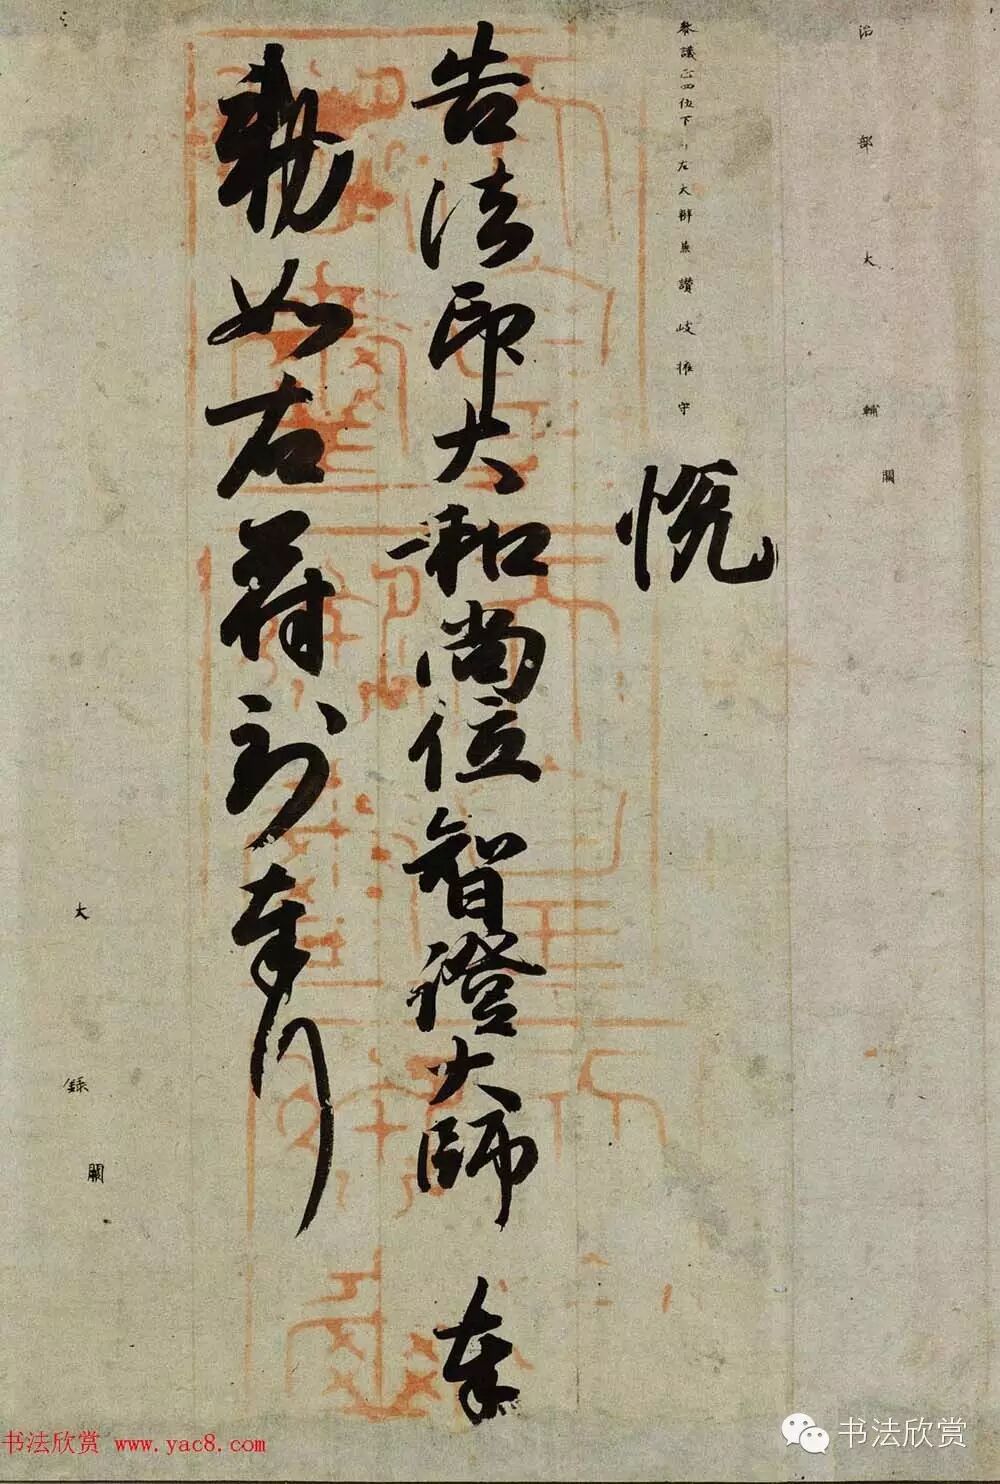 治部大輔闕
參議正四位下行左大辨兼讃岐權守
悅
告法印大和尚位智證大師 奉
勅如右符到奉行
大錄闕
书法欣赏 www.yac8.com
书法欣赏